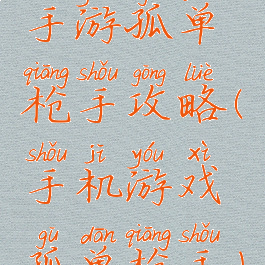 手游孤单
qiāng shǒu gōng lüè
枪手攻略(
shǒu jī yóu xì
手机游戏
gū dān qiāng shǒu
孤单枪手)